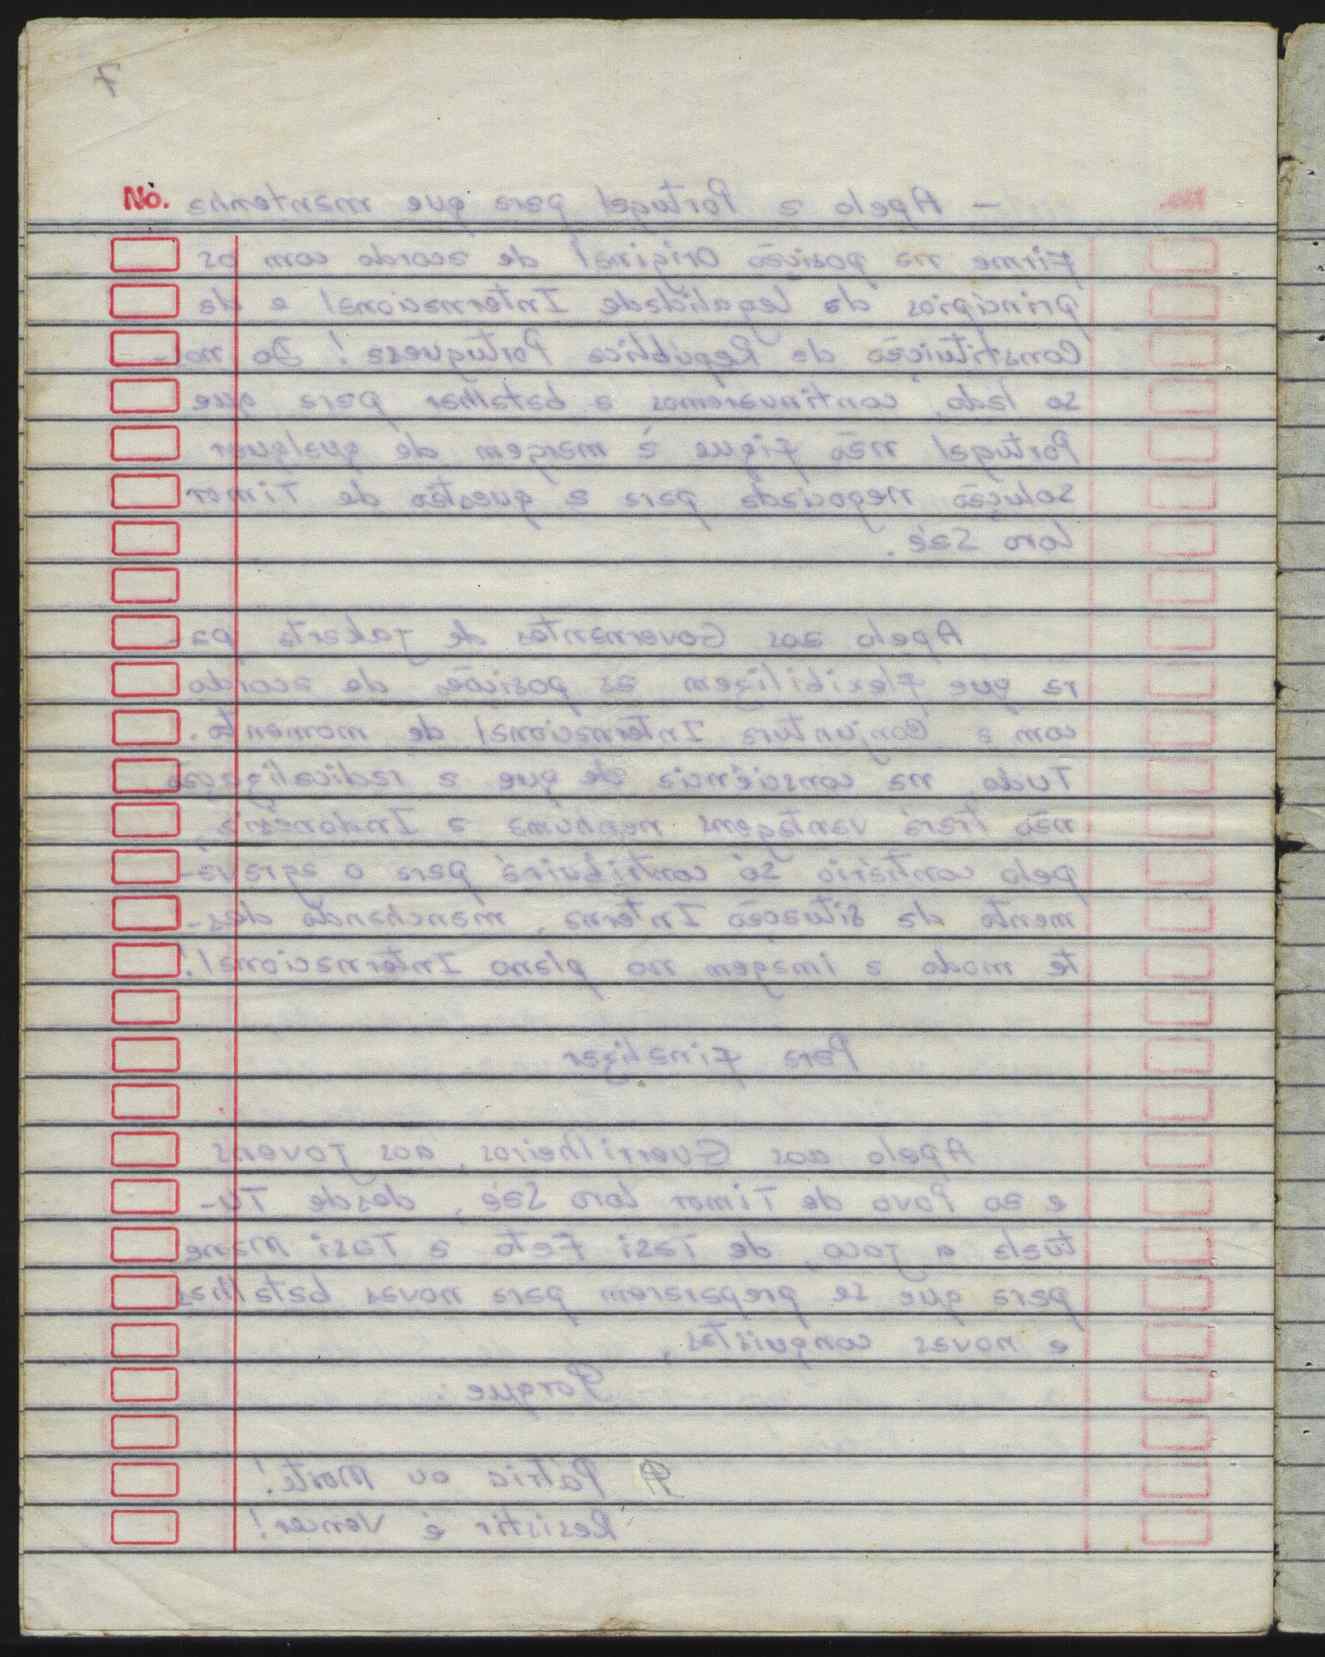 7
No.
- Apelo a Portugal para que mantenha
firme na posição Original de acordo com os
princípios da legalidade Internacional e da
Constituição da República Portuguesa! Do nos-
so lado, continuaremos a batalhar para que
Portugal não fique à margem de qualquer
solução negociada para a questão de Timor
Loro Saé.
Apelo aos Governantes de Jakarta pa-
ra que flexibilizem as posições de acordo
com a Conjuntura Internacional de momento.
Tudo, na consciência de que a radicalização
não trará vantagens nenhuma a Indonésia,
pelo contrário só contribuirá para o agrava-
mento da situação Interna, manchando des-
te modo a imagem no plano Internacional!
Para finalizar
Apelo aos Guerrilheiros, aos Jovens
e ao Povo de Timor Loro Saé, desde Tu-
tuala a Jaco, de Tasi Feto a Tasi Mane
para que se preparem para novas batalhas
e novas conquistas,
Porque:
A Pátria ou Morte!
Resistir é Vencer!